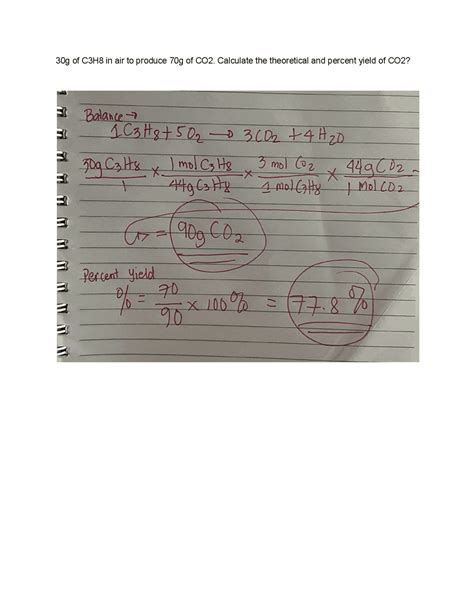 30g of C3H8 in air to produce 70g of CO2. Calculate the theoretical and percent yield of CO2?
Balance →
1C3H8 + 5O2 → 3CO2 + 4H2O
30g C3H8 / 1 × 1 mol C3H8 / 44g C3H8 × 3 mol CO2 / 1 mol C3H8 × 44g CO2 / 1 Mol CO2
= 90g CO2
Percent Yield
% = 70 / 90 × 100% = 77.8%